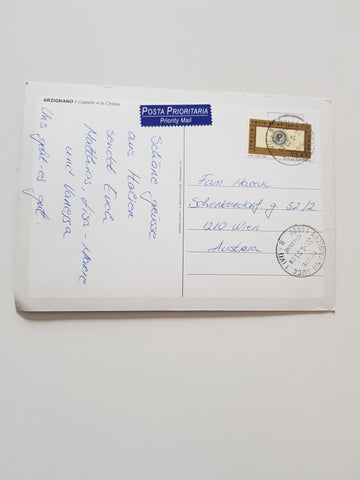 ARZIGNANO Il Castello e la Chiesa
POSTA PRIORITARIA
Priority Mail
Schöne grüsse
aus Italien
sendet Euch
Matthias, Lisa-Marie
und Vanessa
Uns geht es gut.
Fam. Novak
g. 52/2
1210 Wien
Austria